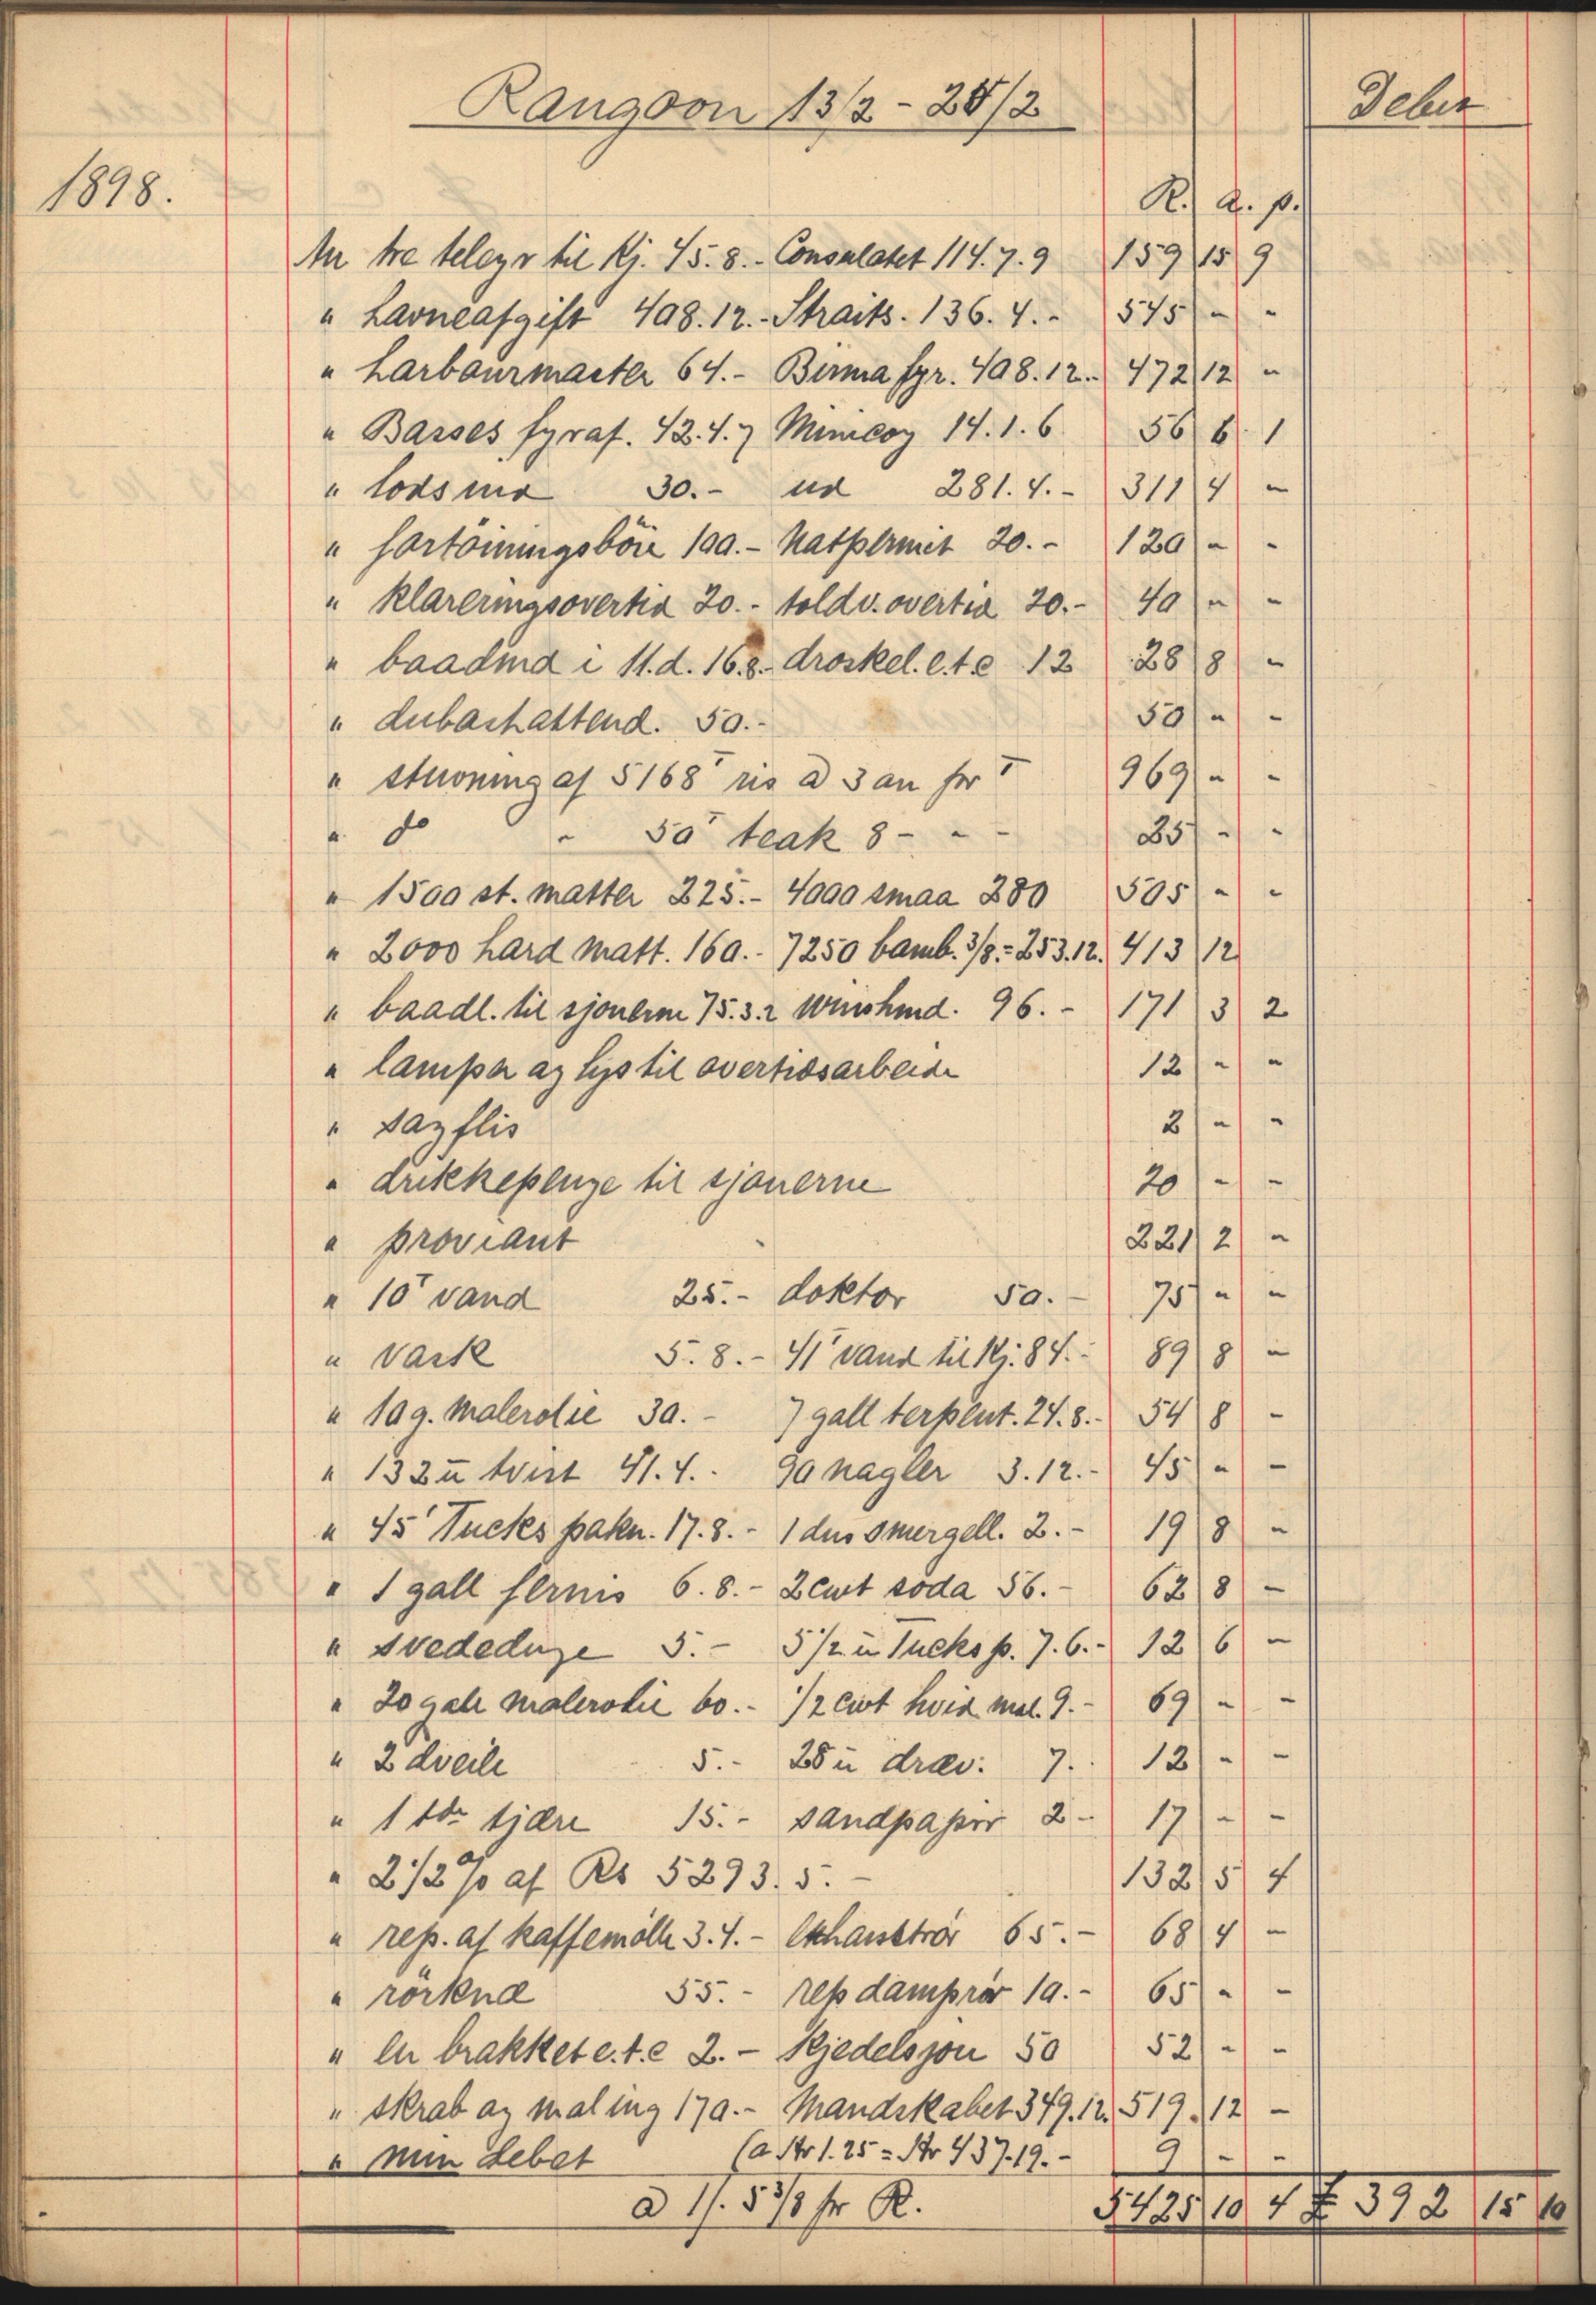 Rangoon 13/2 - 28/2
Debet
1898.
R. a. p.
An tre telegr til Kj. 45. 8. - Consulatet 114. 7. 9 159 15 9
" havneafgift 408. 12. - Straits. 136. 4. - 545 - -
" harbourmaster 64. - Birma fyr. 408. 12. - 472 12 -
" Basses fyraf. 42. 4. 7 Minicoy 14. 1. 6 56 6 1
" lods ind 30. - ud 281. 4. - 311 4 -
" fortöiningsböie 100. - Natpermit 20. - 120 - -
" klareringsovertid 20. - toldv. overtid 20. - 40 - -
" baadind i 11. d. 16. 8. - droskel. e.t.c 12 28 8 -
" dubashattend. 50. - 50 - -
" stuoning af 5168 T ris a 3 an for T 969 - -
" do " 50 T teak 8 - - - 25 - -
" 1500 st. matter 225. - 4000 smaa 280 505 - -
" 2000 hard matt. 160. - 7250 bamb. 3/8 = 253. 12. 413 12
" baadl. til sjouerne 75. 3. 2 Winshmd. 96. - 171 3 2
" lamper og lys til overtidsarbeide 12 - -
" sagflis 2 - -
" drikkepenge til sjouerne 20 - -
" proviant 221 2 -
" 10 T vand 25. - doktor 50. - 75 - -
" vask 5. 8. - 41 T vand til Kj. 84. - 89 8 -
" 10 g. malerolie 30. - 7 gall terpent. 24. 8. - 54 8 -
" 132 u tvist 41. 4. - 90 nagler 3. 12. - 45 - -
" 45' Tucks pakn. 17. 8. - 1 dus smergell. 2. - 19 8 -
" 1 gall fernis 6. 8. - 2 cwt soda 56. - 62 8 -
" svededuge 5. - 5 1/2 u Tucks p. 7. 6. - 12 6 -
" 20 gall malerolie 60. - 1/2 cwt hvid mal. 9. - 69 - -
" 2 dveile 5. - 28 u dræv. 7. - 12 - -
" 1 tdr tjære 15. - sandpapir 2 - 17 - -
" 2 1/2 % af Rs 5293. 5. - 132 5 4
" rep. af kaffemölle 3. 4. - Exhauströr 65. - 68 4 -
" rörkend 55. - rep damprör 10. - 65 - -
" en brakket e.t.c 2. - Kjedelsjou 50 52 - -
" skrab og maling 170. - Mandskabet 349. 12. 519 12 -
" min debet (a Kr 1. 25 = Kr 437. 19. - 9 - -
a 1/. 5 3/8 fr R. 5425 10 4 £ 392 15 10